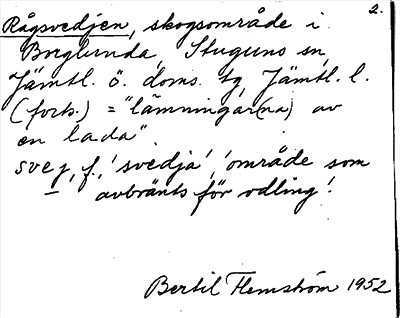 2.
Rågsvedjen, skogsområde i
Borglunda, Stuguns sn,
Jämtl. ö. doms. tg, Jämtl. l.
(forts.) = "lämningar(na) av
en lada".
svej, f., 'svedja', 'område som
avbränts för odling'.
Bertil Flemström 1952